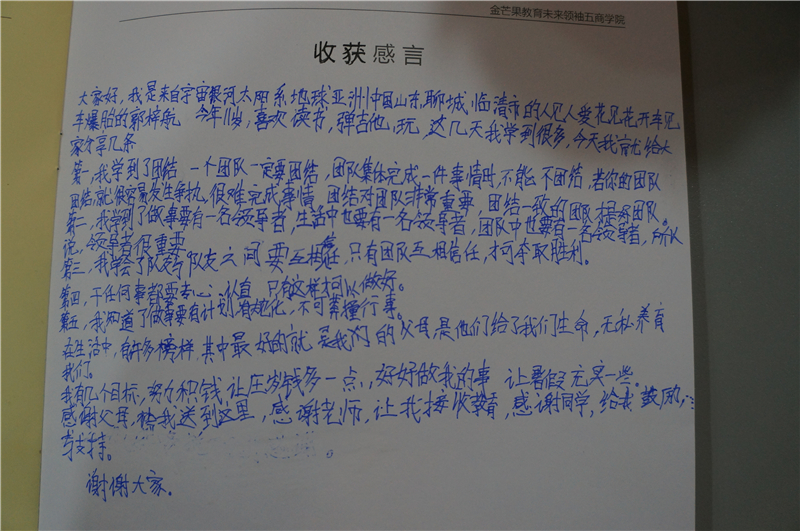 金芒果教育未来领袖五商学院
收获感言
大家好，我是来自宇宙银河太阳系地球亚洲中国山东聊城临清市的人见人爱花见花开车见
车爆胎的郭梓航 今年11岁，喜欢读书，弹吉他，玩，这几天我学到很多，今天我就给大
家分享几条
第一，我学到了团结，一个团队一定要团结，团队集体完成一件事情时，不能不团结，若你的团队
团结就很容易发生争执，很难完成事情，团结对团队非常重要，团结一致的团队才是好团队。
第二，我学到了做事要有一名领导者，生活中也要有一名领导者，团队中也要有一名领导者，所以
说，领导者很重要
第三，我学会了队友与队友之间要互相信任，只有团队互相信任，才可夺取胜利。
第四，干任何事都要专心，认真，只有这样才可以做好。
第五，我知道了做事要有计划，有变化，不可莽撞行事。
在生活中，有许多榜样，其中最好的就是我们的父母，是他们给了我们生命，无私养育
我们。
我有几个目标，努力积钱，让压岁钱多一点，，好好做我的事 让暑假充实一些。
感谢父母，给我送到这里，感谢老师，让我接收教育，感谢同学，给我鼓励，
与支持。
谢谢大家。